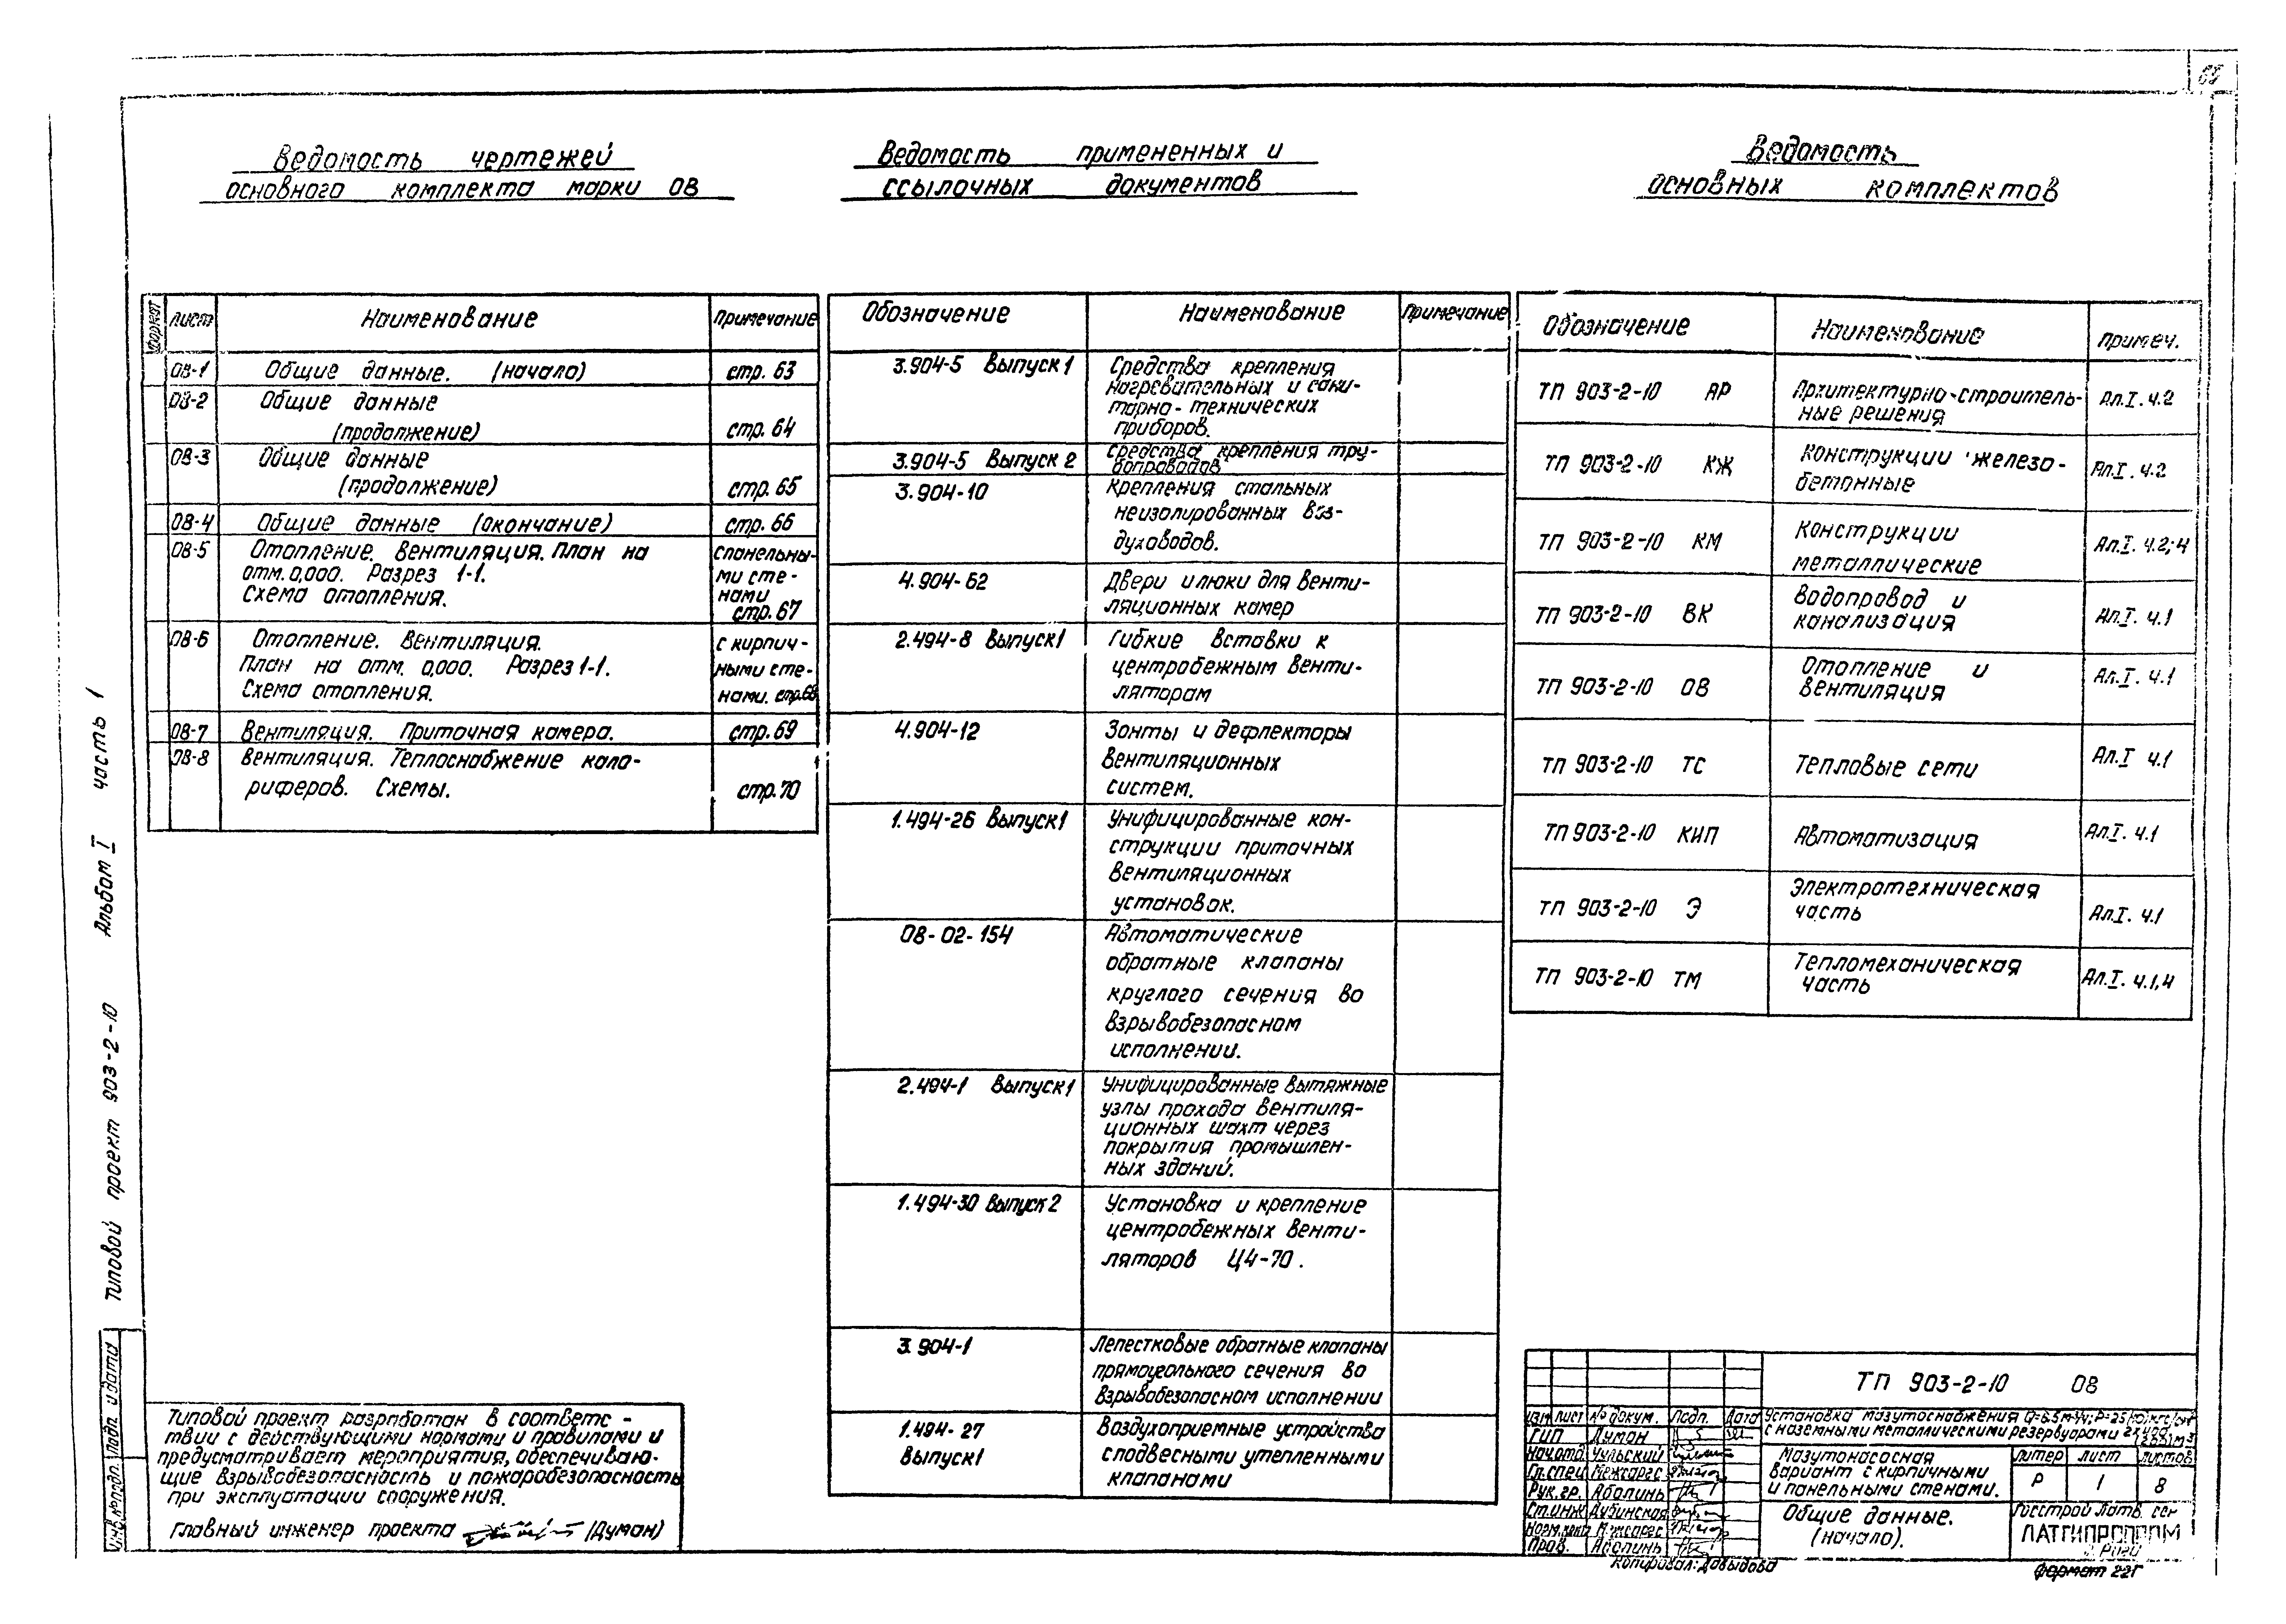 Ведомость чертежей
основного комплекта марки ОВ
Формат
лист
Наименование
Примечание
ОВ-1 Общие данные. (начало) стр. 63
ОВ-2 Общие данные
(продолжение) стр. 64
ОВ-3 Общие данные
(продолжение) стр. 65
ОВ-4 Общие данные (окончание) стр. 66
ОВ-5 Отопление. Вентиляция. План на
отм. 0,000. Разрез 1-1.
Схема отопления.
спанельны-
ми сте-
нами
стр. 67
ОВ-6 Отопление. Вентиляция.
План на отм. 0,000. Разрез 1-1.
Схема отопления.
с кирпич-
ными сте-
нами. стр.68
ОВ-7 Вентиляция. Приточная камера. стр. 69
ОВ-8 Вентиляция. Теплоснабжение кало-
риферов. Схемы. стр.70
Ведомость примененных и
ссылочных документов
Обозначение Наименование Примечание
3.904-5 Выпуск 1 Средства крепления
нагревательных и сани-
тарно-технических
приборов.
3.904-5 Выпуск 2 Средства крепления тру-
бопроводов
3.904-10 Крепления стальных
неизолированных воз-
духоводов.
4.904-62 Двери и люки для венти-
ляционных камер
2.494-8 Выпуск1 Гибкие вставки к
центробежным венти-
ляторам
4.904-12 Зонты и дефлекторы
вентиляционных
систем.
1.494-26 Выпуск1 Унифицированные кон-
струкции приточных
вентиляционных
установок.
08-02-154 Автоматические
обратные клапаны
круглого сечения во
взрывобезопасном
исполнении.
2.494-1 Выпуск1 Унифицированные вытяжные
узлы прохода вентиля-
ционных шахт через
покрытия промышлен-
ных зданий.
1.494-30 Выпуск 2 Установка и крепление
центробежных венти-
ляторов Ц4-70.
3.904-1 Лепестковые обратные клапаны
прямоугольного сечения во
взрывобезопасном исполнении
1.494-27
Выпуск1
Воздухоприемные устройства
с подвесными утепленными
клапанами
Ведомость
основных комплектов
Обозначение Наименование Примеч.
ТП 903-2-10 АР Архитектурно-строитель-
ные решения
Ал.I. ч.2
ТП 903-2-10 КЖ Конструкции железо-
бетонные
Ал.I. ч.2
ТП 903-2-10 КМ Конструкции
металлические
Ал.I. ч.2;4
ТП 903-2-10 ВК Водопровод и
канализация
Ал.I. ч.1
ТП 903-2-10 ОВ Отопление и
вентиляция
Ал.I. ч.1
ТП 903-2-10 ТС Тепловые сети Ал.I ч.1
ТП 903-2-10 КИП Автоматизация Ал.I. ч.1
ТП 903-2-10 Э Электротехническая
часть
Ал.I. ч.1
ТП 903-2-10 ТМ Тепломеханическая
часть
Ал.I. ч.1,4
Типовой проект 903-2-10 Альбом I часть 1
Инв.№подл. Подп. и дата
Типовой проект разработан в соответс-
твии с действующими нормами и правилами и
предусматривает мероприятия, обеспечиваю-
щие взрывобезопасность и пожаробезопасность
при эксплуатации сооружения.
Главный инженер проекта (Думан)
ТП 903-2-10 ОВ
Изм лист № докум. Подп. Дата
ГИП Думан
Нач.отд. Чульский
Гл.спец
Рук.гр. Аболинь
Ст.инж Дубинская
Норм.конт
Пров. Аболинь
Установка мазутоснабжения
с наземными металлическими резервуарами
Мазутонасосная
вариант с кирпичными
и панельными стенами.
литер лист листов
Р 1 8
Общие данные.
(начало).
Госстрой Латв. сср
ЛАТГИПРОПРОМ
г. Рига
Копировал: Давыдова
Формат 22Г